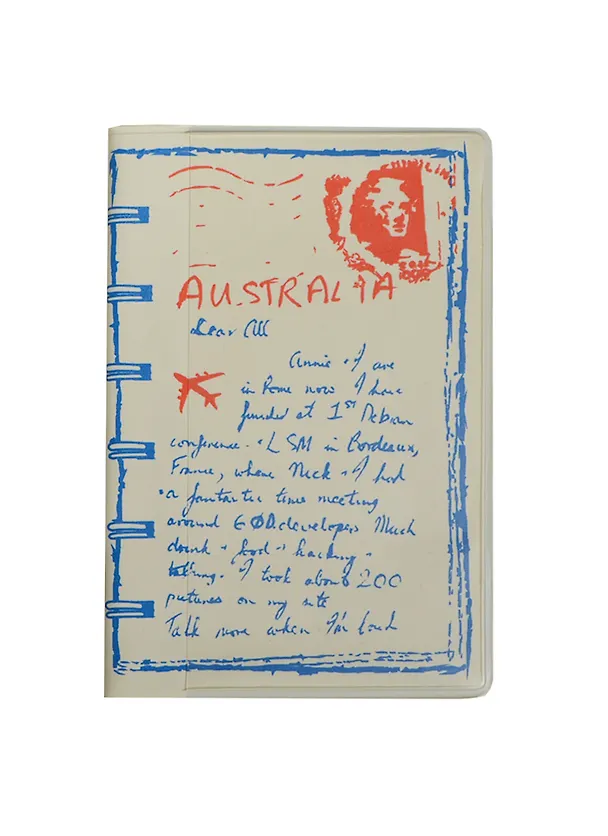 AUSTRALIA
Dear All
Annie & I are
in Rome now I have
finished at 1ST Debian
conference. & LSM in Bordeaux,
France, where Nick & I had
a fantastic time meeting
around 60 developers Much
drink & food & hacking &
talking. I took about 200
pictures on my site
Talk more when I'm